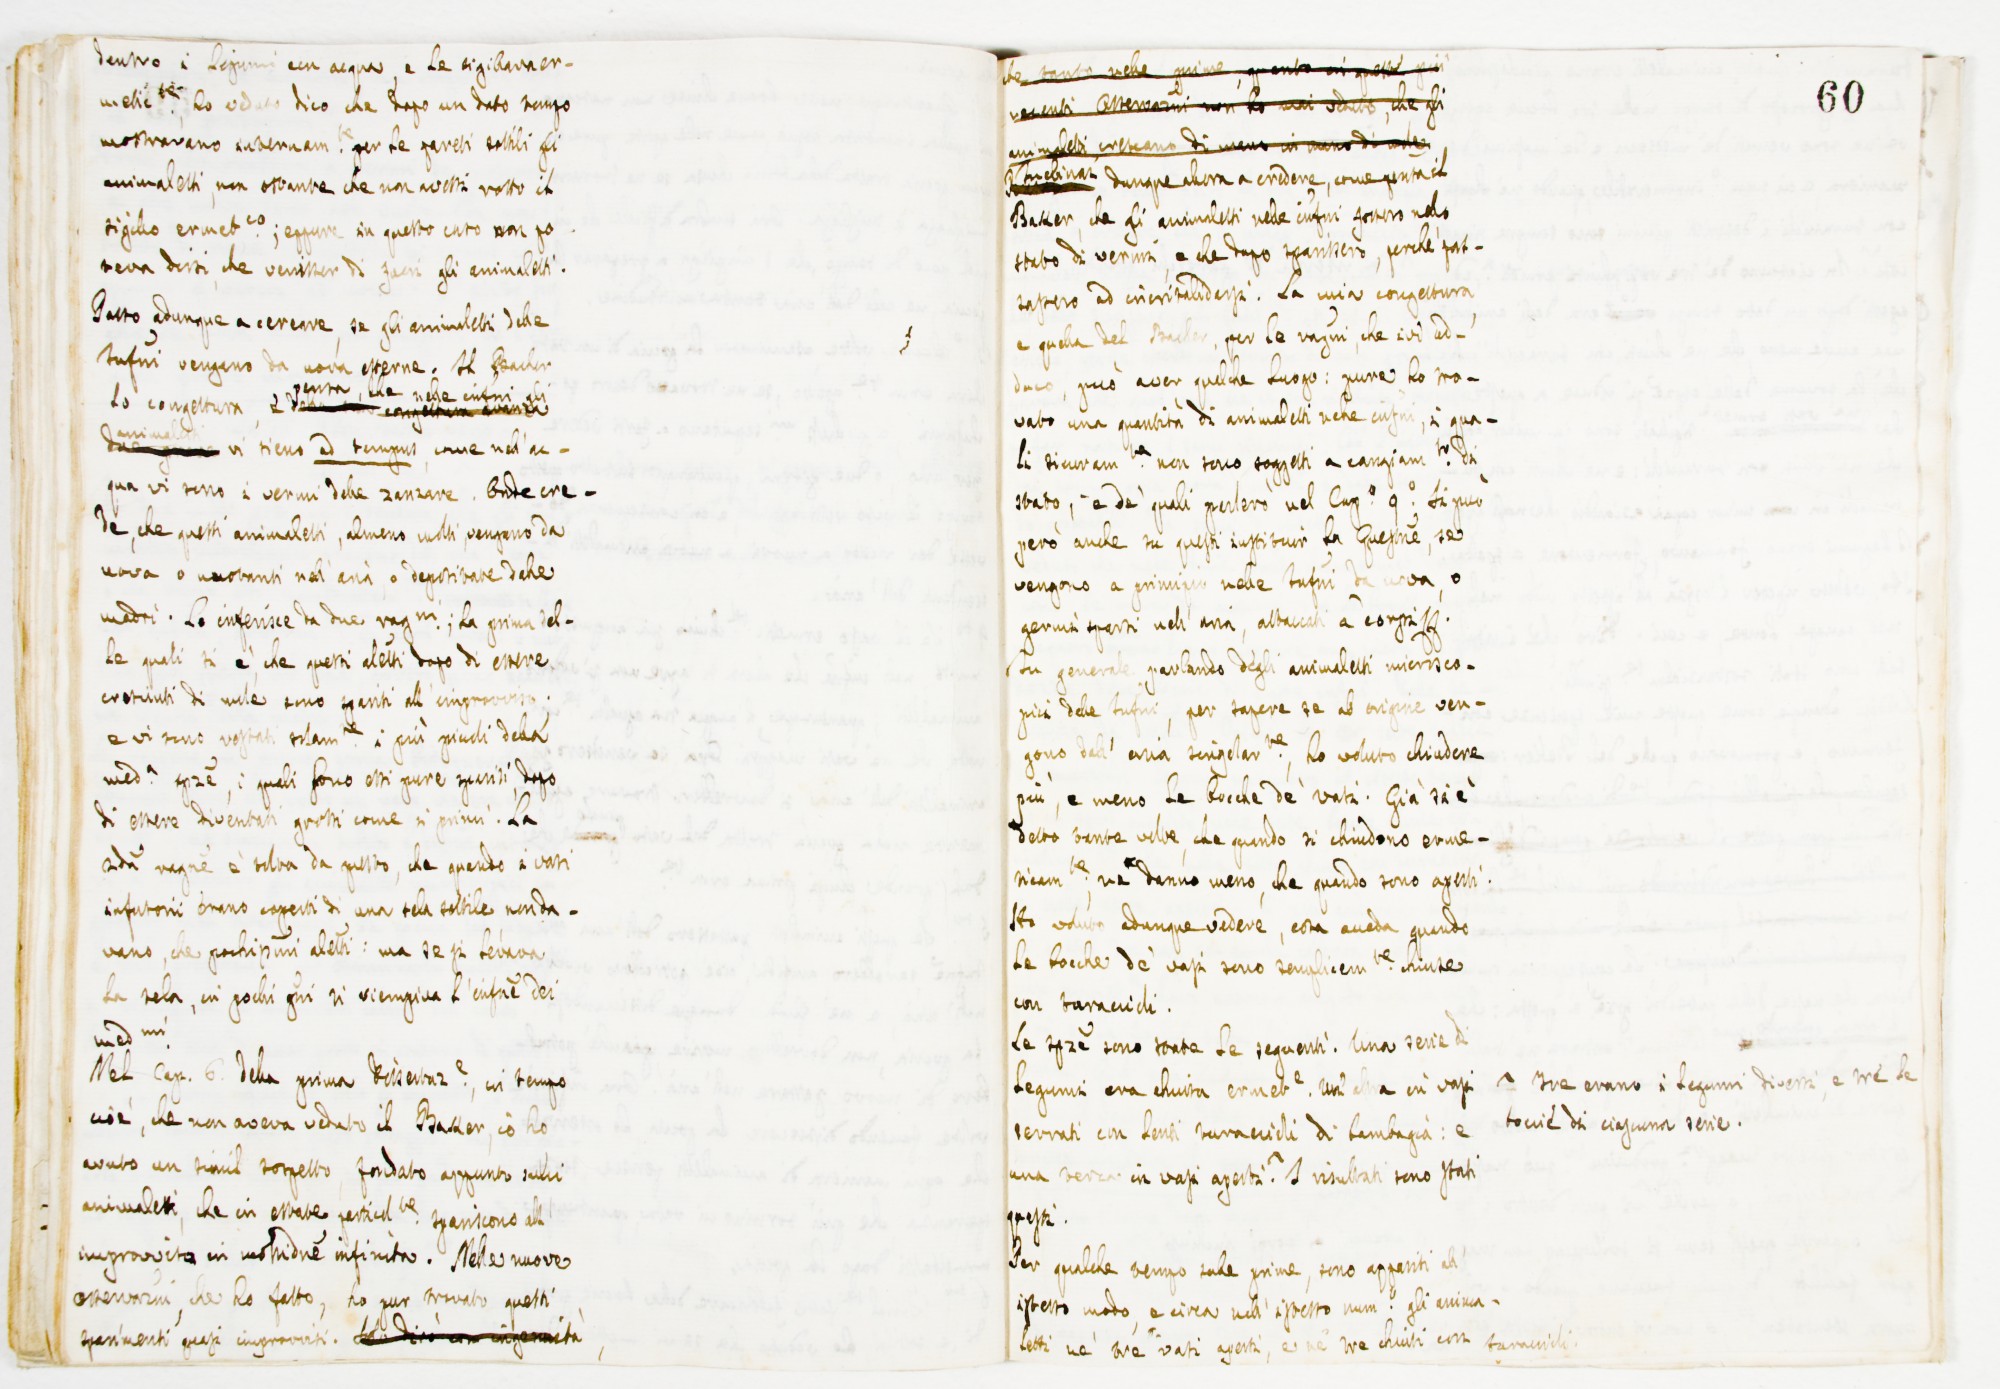 dentro i legumi con acqua, e le sigillava er-
metic.te, ho veduto dico che dopo un dato tempo
mostravano internam.te per le pareti sottili gli
animaletti, non ostante che non avessi rotto il
sigillo ermet.co; eppure in questo caso non po-
teva dirsi, che venisser di fuori gli animaletti.
Passo adunque a cercare, se gli animaletti delle
Infusni vengano da uova esterne. Il Backer
lo congettura, e pensa, che nelle infusni gli
animaletti vi sieno ad tempus, come nell'ac-
qua vi sono i vermi delle zanzare. Onde cre-
de, che questi animaletti, almeno molti, vengono da
uova o nuotanti nell'aria, o depositate dalle
madri. Lo inferisce da due ragni; la prima del-
le quali si è, che questi aletti dopo di essere
cresciuti di mole sono spariti all'improvviso.
e vi sono restati solam.te i più piccoli della
med.a spzē, i quali sono essi pure spariti, dopo
di essere diventati grossi come i primi. La
2da ragnē è tolta da questo, che quando i vasi
infusorii erano coperti di una tela sottile non da-
vano, che pochissimi aletti: ma se si levava
la tela, in pochi gni si riempiva l'infusnē dei
med.mi
Nel Cap. 6. della prima Dissertaz.e, in tempo
cioè, che non aveva veduto il Backer, io ho
avuto un simil sospetto, fondato appunto sulli
animaletti, che in estate particol.te spariscono all'
improvviso in moltidnē infinita. Nelle nuove
osservazni, che ho fatto, ho pur trovato questi
sparimenti quasi improvvisi. Lo dirò con ingenuità,
che tanto nelle prime, quanto in queste più
recenti Osservazni non ho mai veduto, che gli
animaletti crescano di mano in mano di mole
Inclinai dunque allora a credere, come pensa il
Backer, che gli animaletti nelle infusni fossero nello
stato di vermi, e che dopo sparissero, perchè pas-
sassero ad incrisalidarsi. La mia congettura,
e quella del Backer, per le ragni, che ivi ad-
duco, può aver qualche luogo: pure ho tro-
vato una quantità di animaletti nelle infusni, i qua-
li sicuram.te non sono soggetti a cangiam.to di
stato, e de' quali parlerò nel Cap.o 9.o Si può
però anche su questi instituir la Questnē, se
vengono a principio nelle Infusni da uova, o
germi sparsi nell'aria, attaccati a' corpi
In generale parlando degli animaletti micrisco-
pici delle Infusni, per sapere se ab origine ven-
gono dall'aria singolar.te, ho voluto chiudere
più, e meno le bocche de' vasi. Già si è
detto tante volte, che quando si chiudono erme-
ticam.te, ne danno meno, che quando sono aperti.
Ho voluto adunque vedere, cosa acceda quando
le bocche de' vasi sono semplicem.te chiuse
con turaccioli.
Le spzē sono state le seguenti. Una serie di
legumi era chiusa ermet.e Un'altra in vasi
serrati con lenti turaccioli di bambagia: e
una terza in vasi aperti.^ I risultati sono stati
questi.
Per qualche tempo sulle prime, sono appariti all'
istesso modo, e circa nell'istesso num.o gli anima-
letti ne' tre vasi aperti, e ne' tre chiusi con turaccioli.
^ Tre erano i legumi diversi, e tre le
boccie di ciascuna serie.
60